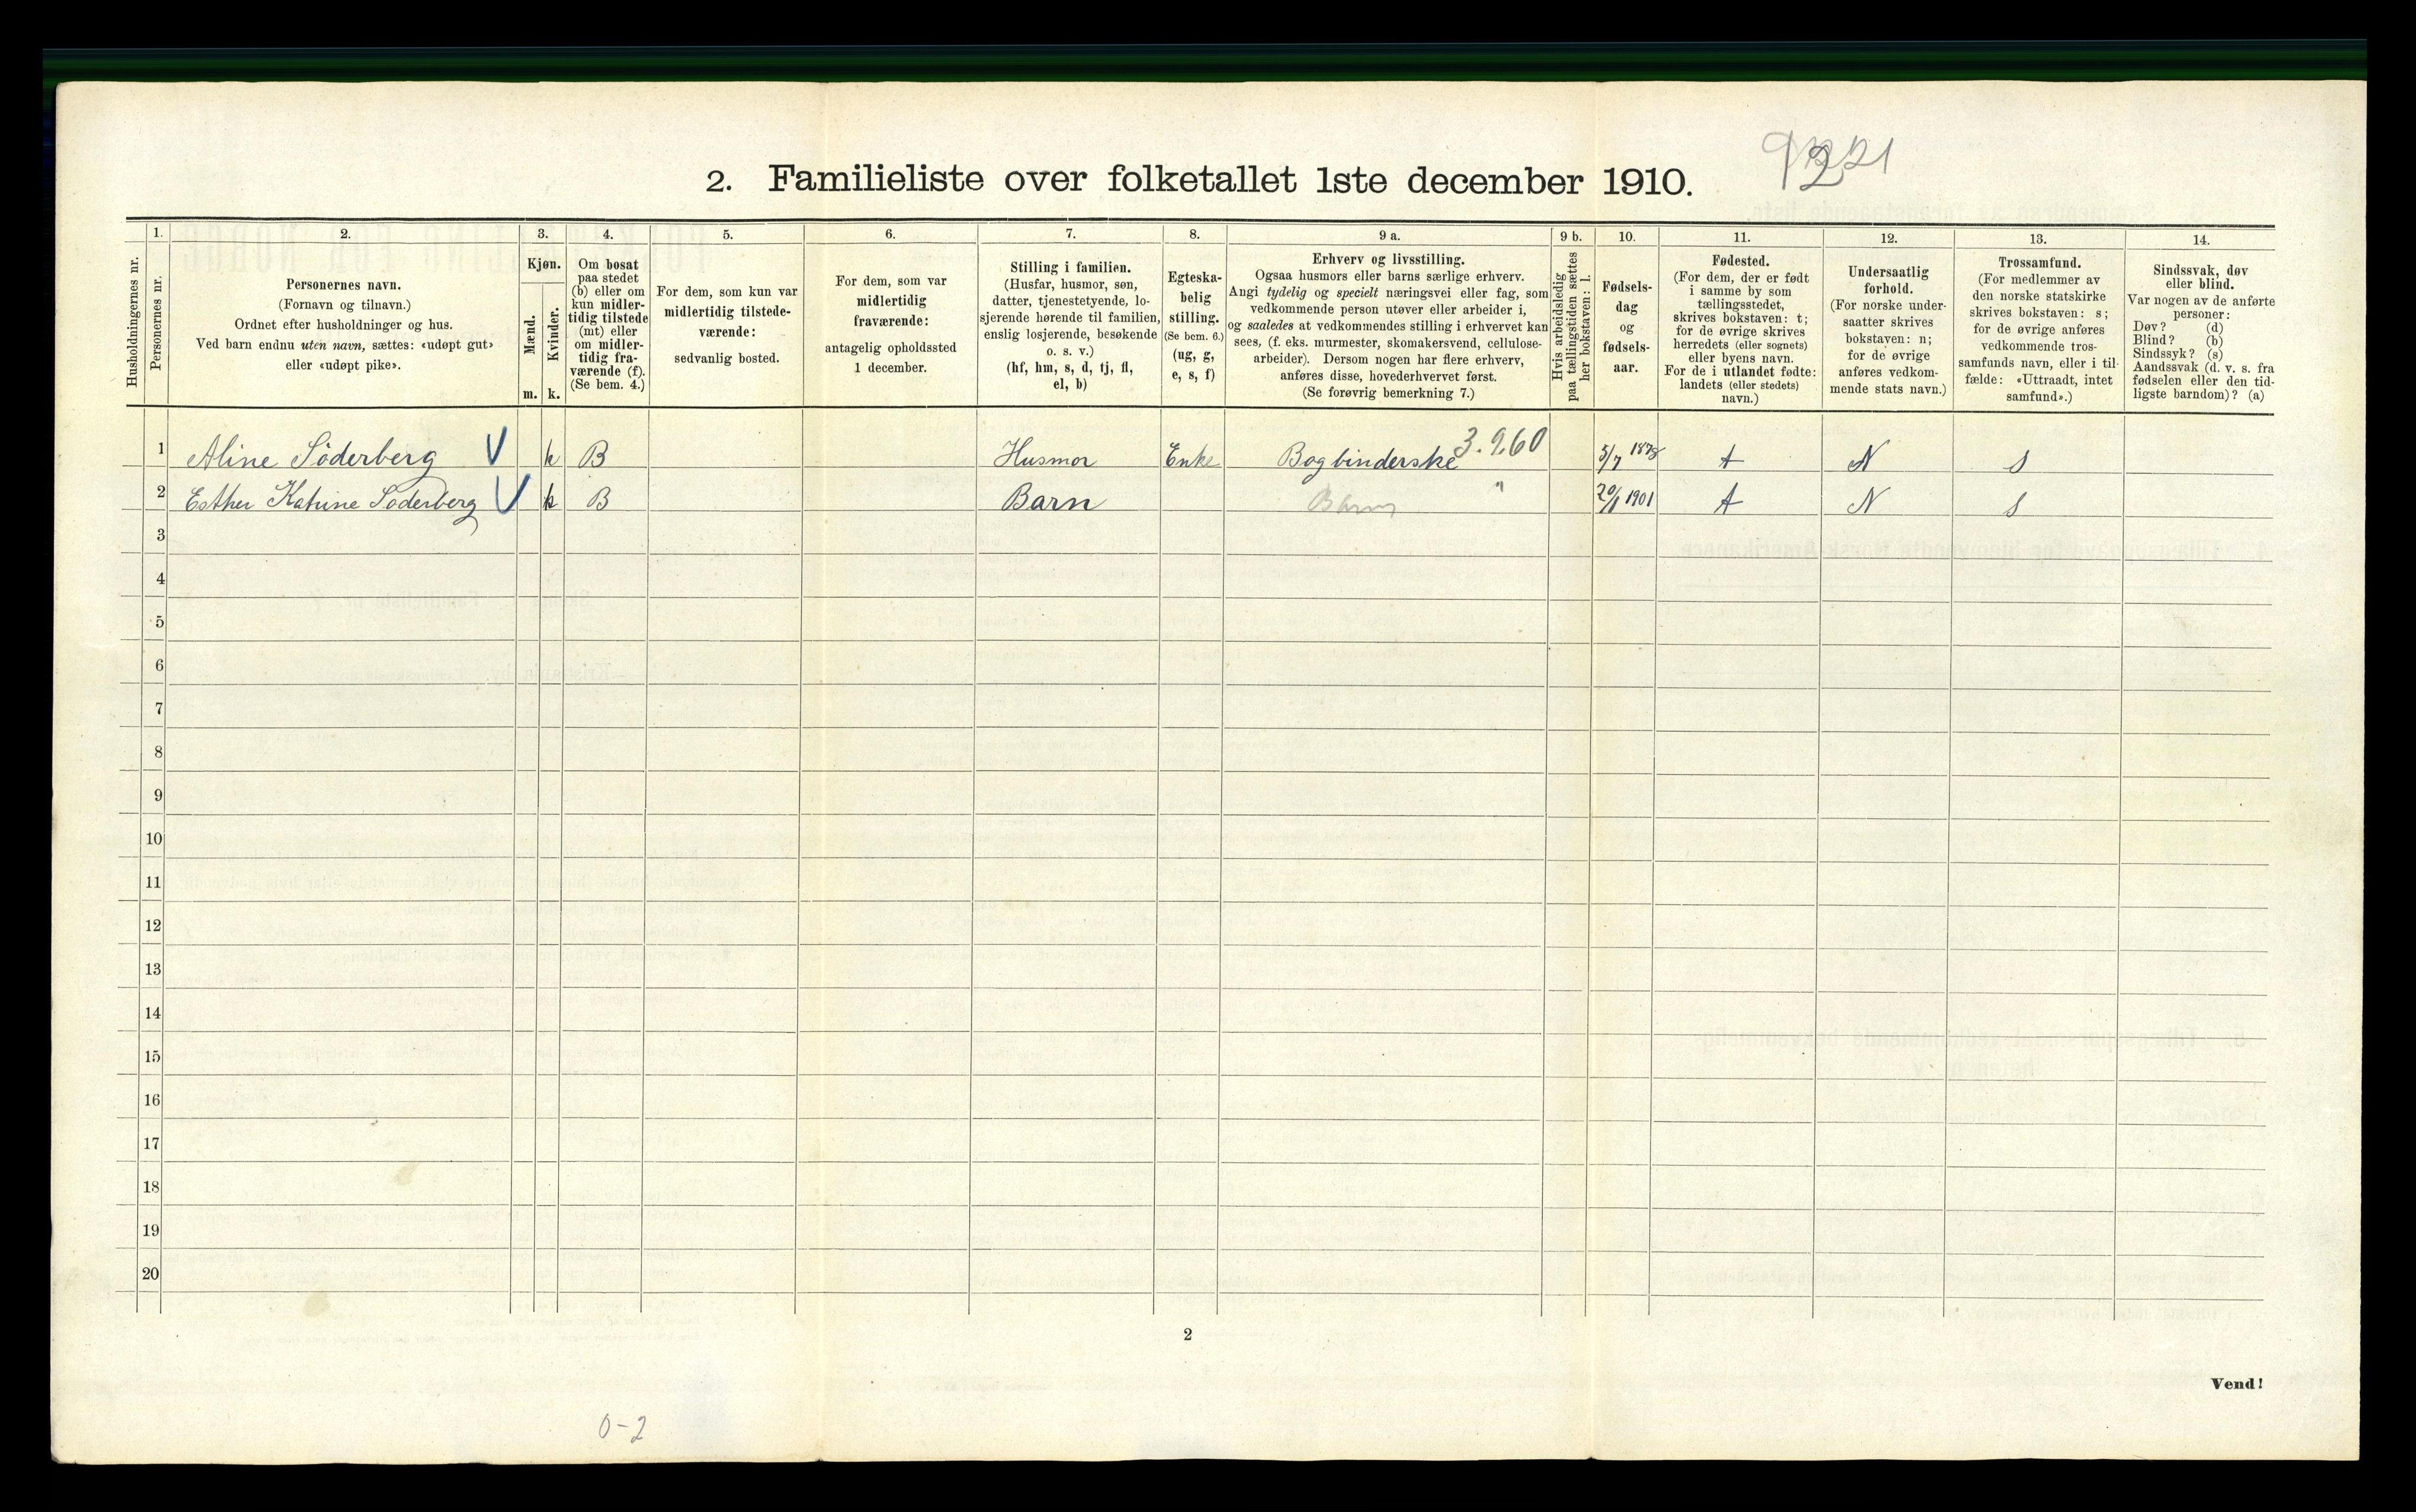 2. Familieliste over folketallet 1ste december 1910.
Husholdningernes nr.
1.
Personernes nr.
2.
Personernes navn.
(Fornavn og tilnavn.)
Ordnet efter husholdninger og hus.
Ved barn endnu uten navn, sættes: «udøpt gut»
eller «udøpt pike».
3.
Kjøn.
Mænd.
Kvinder.
m. k.
4.
Om bosat
paa stedet
(b) eller om
kun midler-
tidig tilstede
(mt) eller
om midler-
tidig fra-
værende (f).
(Se bem. 4.)
5.
For dem, som kun var
midlertidig tilstede-
værende:
sedvanlig bosted.
6.
For dem, som var
midlertidig
fraværende:
antagelig opholdssted
1 december.
7.
Stilling i familien.
(Husfar, husmor, søn,
datter, tjenestetyende, lo-
sjerende hørende til familien,
enslig losjerende, besøkende
o. s. v.)
(hf, hm, s, d, tj, fl,
el, b)
8.
Egteska-
belig
stilling.
(Se bem. 6.)
(ug, g,
e, s, f)
9 a.
Erhverv og livsstilling.
Ogsaa husmors eller barns særlige erhverv.
Angi tydelig og specielt næringsvei eller fag, som
vedkommende person utøver eller arbeider i,
og saaledes at vedkommendes stilling i erhvervet kan
sees, (f. eks. murmester, skomakersvend, cellulose-
arbeider). Dersom nogen har flere erhverv,
anføres disse, hovederhvervet først.
(Se forøvrig bemerkning 7.)
9 b.
Hvis arbeidsledig
paa tællingstiden sættes
her bokstaven: l.
10.
Fødsels-
dag
og
fødsels-
aar.
11.
Fødested.
(For dem, der er født
i samme by som
tællingsstedet,
skrives bokstaven: t;
for de øvrige skrives
herredets (eller sognets)
eller byens navn.
For de i utlandet fødte:
landets (eller stedets)
navn.)
12.
Undersaatlig
forhold.
(For norske under-
saatter skrives
bokstaven: n;
for de øvrige
anføres vedkom-
mende stats navn.)
13.
Trossamfund.
(For medlemmer av
den norske statskirke
skrives bokstaven: s;
for de øvrige anføres
vedkommende tros-
samfunds navn, eller i til-
fælde: «Uttraadt, intet
samfund».)
14.
Sindssvak, døv
eller blind.
Var nogen av de anførte
personer:
Døv? (d)
Blind? (b)
Sindssyk? (s)
Aandssvak (d. v. s. fra
fødselen eller den tid-
ligste barndom)? (a)
1 Aline Söderberg V k B Husmor Enke Bogbinderske 3.9.60 5/7 1878 t N s
2 Esther Katrine Söderberg V k B Barn Barn " 20/1 1901 t N s
3
4
5
6
7
8
9
10
11
12
13
14
15
16
17
18
19
20
2
Vend!
0-2